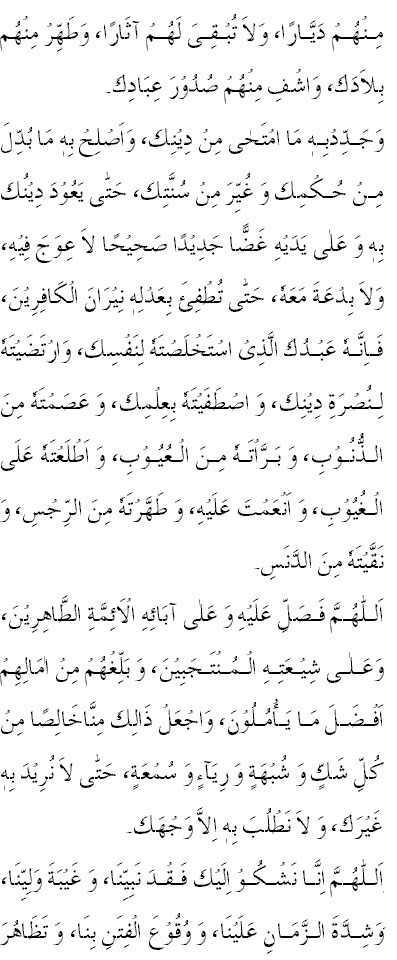 مِنْهُمْ دَيَّارًا، وَلاَ تُبْقِىَ لَهُمْ آثَارًا، وَطَهِّرْ مِنْهُم
بِلاَدَكَ، وَاشْفِ مِنْهُمْ صُدُوْرَ عِبَادِكَ۔
وَجَدِّدْبِهٖ مَا امْتَحٰى مِنْ دِيْنِكَ، وَاَصْلِحْ بِهٖ مَا بُدِّلَ
مِنْ حُكْمِكَ وَ غُيِّرَ مِنْ سُنَّتِكَ، حَتّٰى يَعُوْدَ دِيْنُكَ
بِهٖ وَ عَلٰى يَدَيْهِ غَضًّا جَدِيْدًا صَحِيْحًا لاَ عِوَجَ فِيْهِ،
وَلاَ بِدْعَةَ مَعَهٗ، حَتّٰى تُطْفِئَ بِعَدْلِهٖ نِيْرَانَ الْكَافِرِيْنَ،
فَاِنَّهٗ عَبْدُكَ الَّذِىْ اسْتَخْلَصْتَهٗ لِنَفْسِكَ، وَارْتَضَيْتَهٗ
لِنُصْرَةِ دِيْنِكَ، وَ اصْطَفَيْتَهٗ بِعِلْمِكَ، وَ عَصَمْتَهٗ مِنَ
الذُّنُوْبِ، وَ بَرَّاْتَهٗ مِنَ الْعُيُوْبِ، وَ اَطْلَعْتَهٗ عَلَى
الْغُيُوْبِ، وَ اَنْعَمْتَ عَلَيْهِ، وَ طَهَّرْتَهٗ مِنَ الرِّجْسِ، وَ
نَقَّيْتَهٗ مِنَ الدَّنَسِ۔
اَللّٰهُمَّ فَصَلِّ عَلَيْهِ وَ عَلٰى آبَائِهِ الْاَئِمَّةِ الطَّاهِرِيْنَ،
وَعَلٰى شِيْعَتِهِ الْمُنْتَجَبِيْنَ، وَ بَلِّغْهُمْ مِنْ اٰمَالِهِمْ
اَفْضَلَ مَا يَأْمُلُوْنَ، وَاجْعَلْ ذَالِكَ مِنَّاخَالِصًا مِنْ
كُلِّ شَكٍ وَ شُبْهَةٍ وَ رِيَآءٍ وَ سُمْعَةٍ، حَتّٰى لاَ نُرِيْدَ بِهٖ
غَيْرَكَ، وَ لاَ نَطْلُبَ بِهٖ اِلاَّ وَجْهَكَ۔
اَللّٰهُمَّ اِنَّا نَشْكُوْ اِلَيْكَ فَقْدَ نَبِيِّنَا، وَ غَيْبَةَ وَلِيِّنَا،
وَشِدَّةَ الزَّمَانِ عَلَيْنَا، وَ وُقُوْعَ الْفِتَنِ بِنَا، وَ تَظَاهُرَ